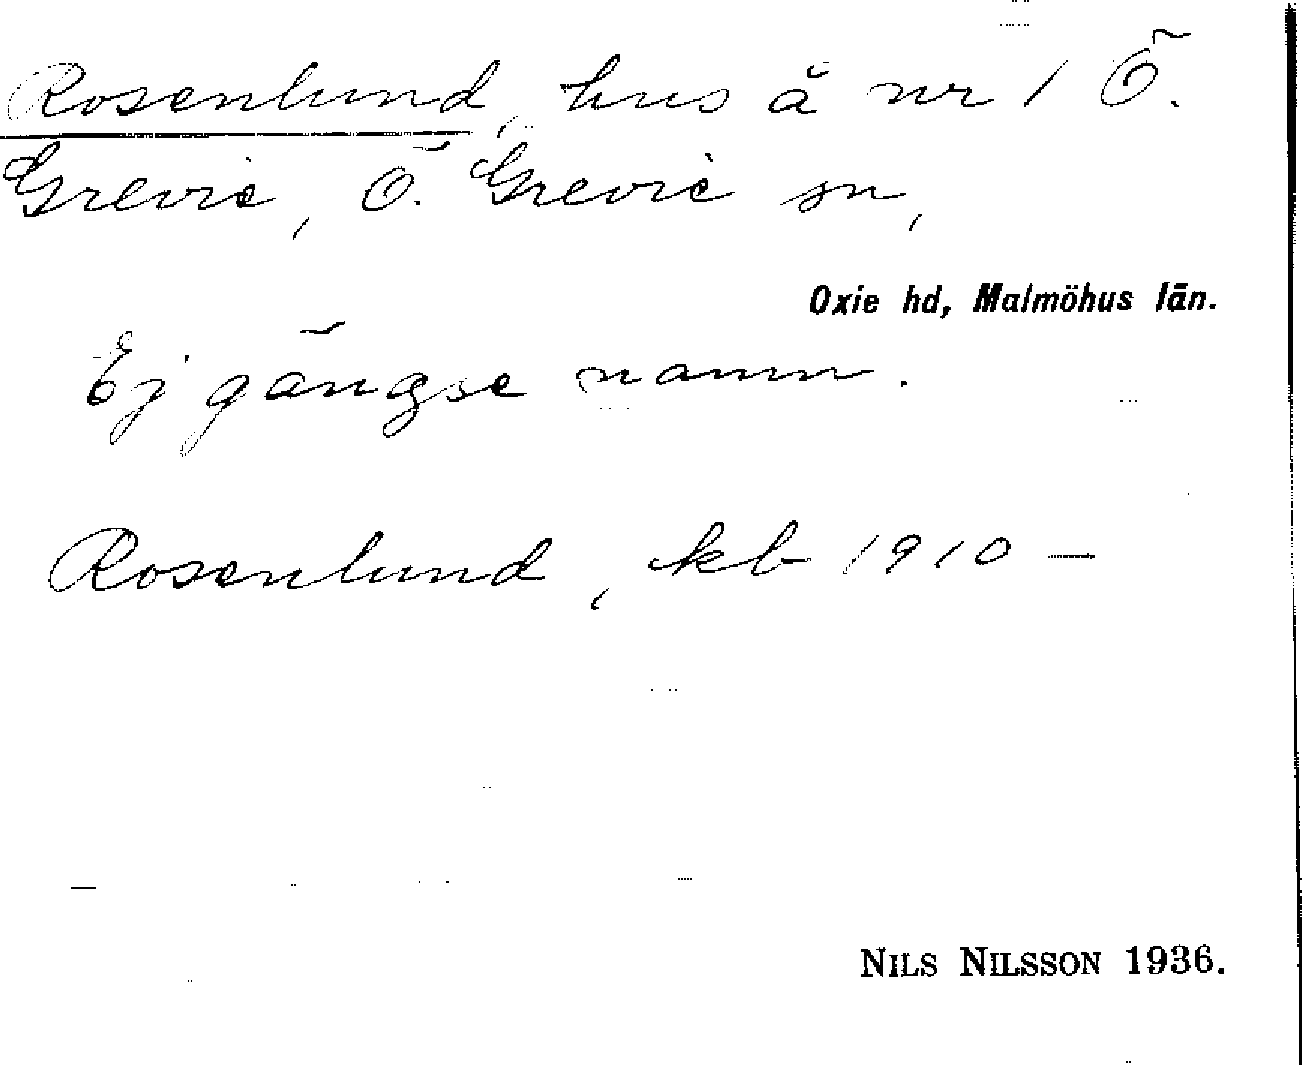 Rosenlund, hus å nr 1 Ö.
Grevie, Ö. Grevie sn,
Oxie hd, Malmöhus län.
Ej gängse namn.
Rosenlund, kb 1910 —
NILS NILSSON 1936.